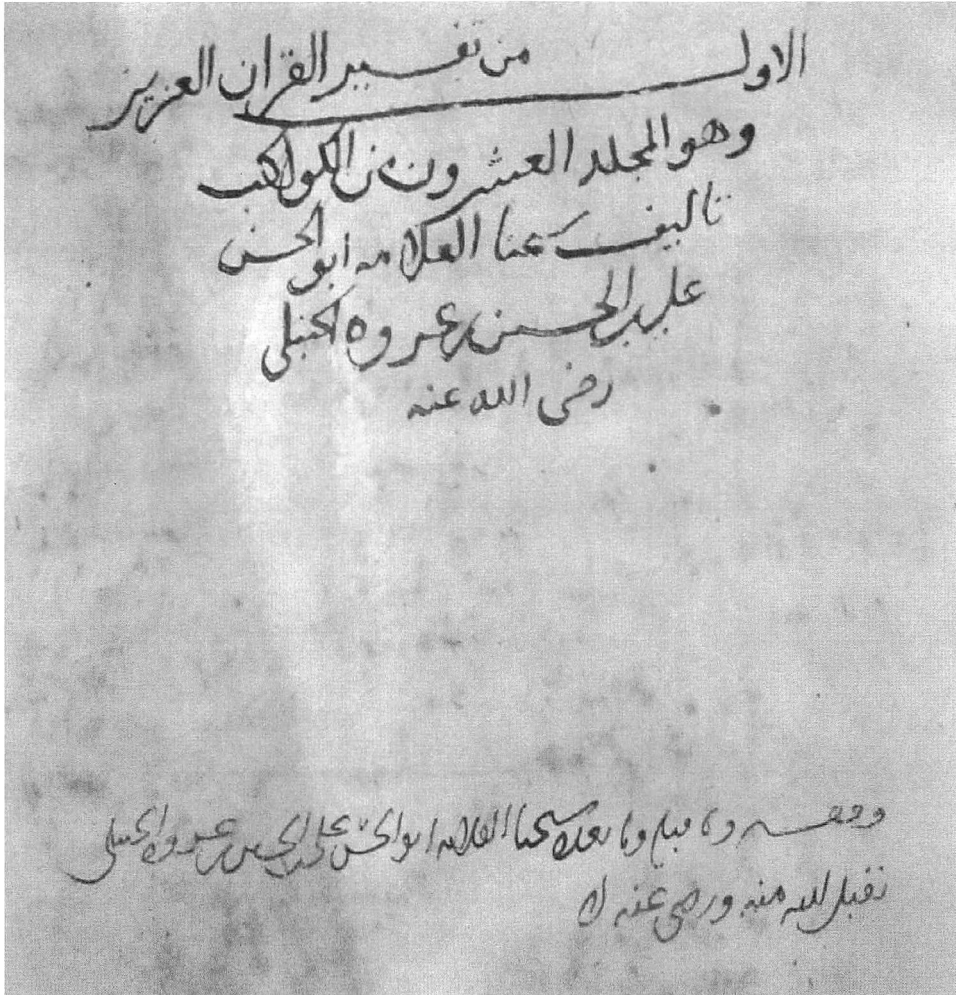 الاول من تفسير القران العزيز
وهو المجلد العشرون من الكواكب
تاليف شيخنا العلامه ابو الحسن
علي بن الحسين بن عروه الحنبلي
رضي الله عنه
وقفه وما قبله وما بعده شيخنا العلامه ابو الحسن علي بن الحسين بن عروه الحنبلي
تقبل الله منه ورضي عنه